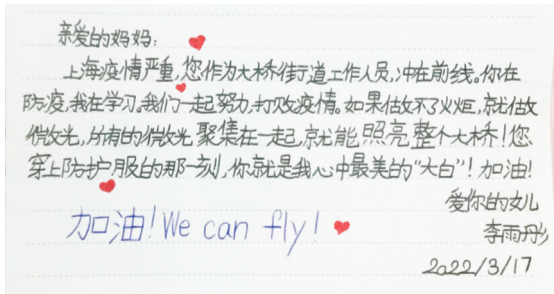 亲爱的妈妈:
上海疫情严重,您作为大桥街道工作人员,冲在前线。你在
防疫,我在学习。我们一起努力,打败疫情。如果做不了火炬,就做
微光,所有的微光聚集在一起,就能照亮整个大桥!您
穿上防护服的那一刻,你就是我心中最美的“大白”!加油!
爱你的女儿
李雨彤
加油!We can fly!
2022/3/17